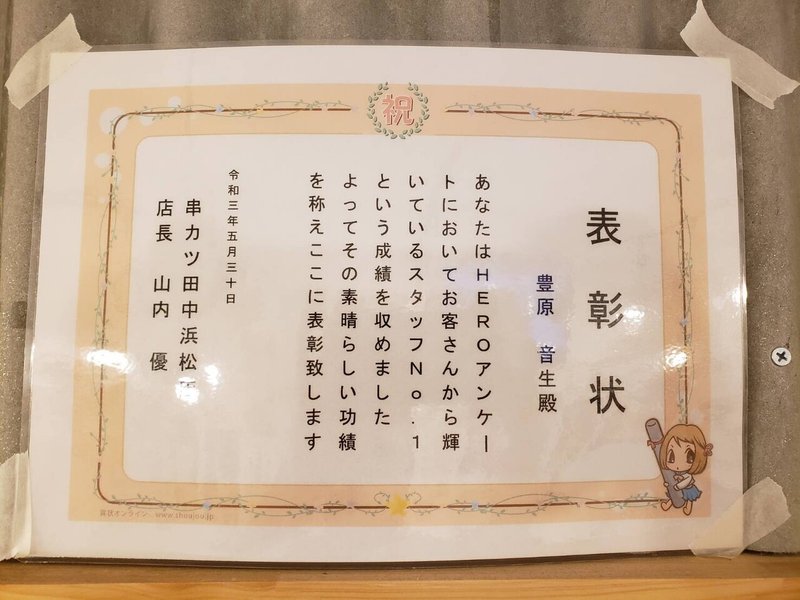 祝
表彰状
豊原 音生殿
あなたはHEROアンケー
トにおいてお客さんから輝
いているスタッフNo.1
という成績を収めました
よってその素晴らしい功績
を称えここに表彰致します
令和三年五月三十日
串カツ田中浜松
店長 山内 優
賞状オンライン www.shoujou.jp